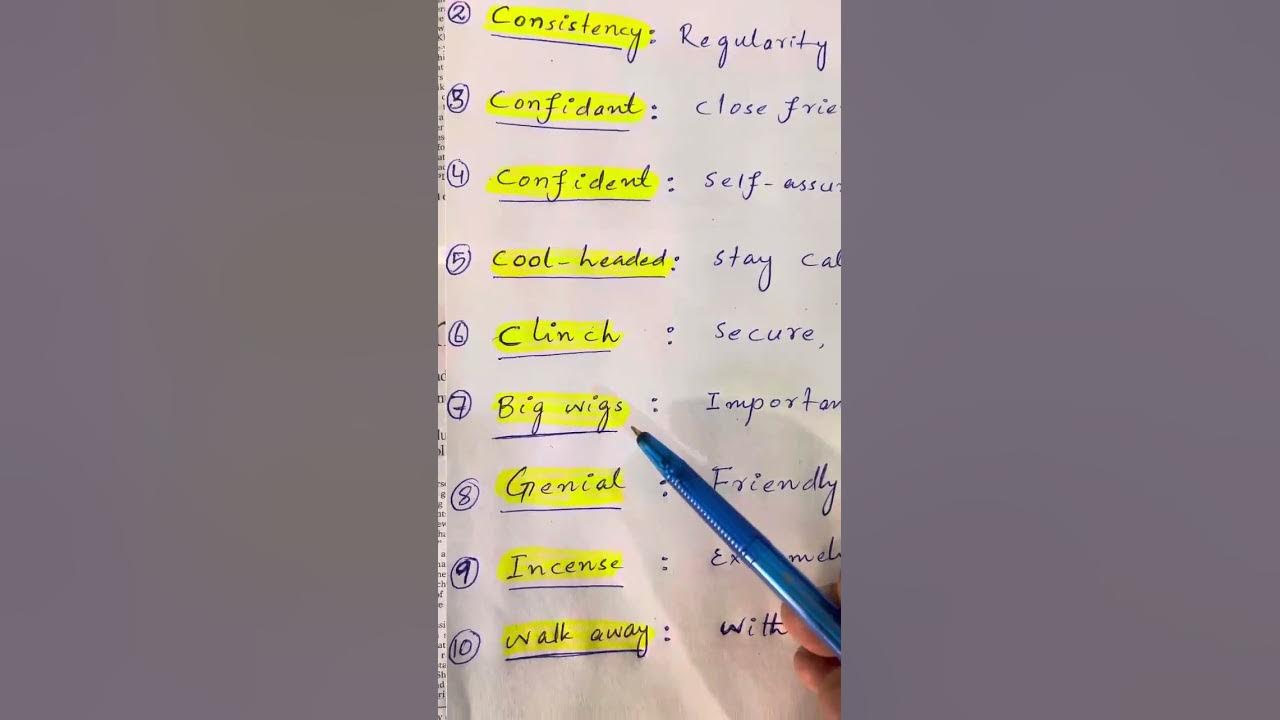 ② Consistency: Regularity
③ Confidant: close frie
④ Confident: Self-assu
⑤ Cool-headed: stay cal
⑥ Clinch : Secure,
⑦ Big wigs : Importan
⑧ Genial : Friendly
⑨ Incense :
⑩ walk away: with